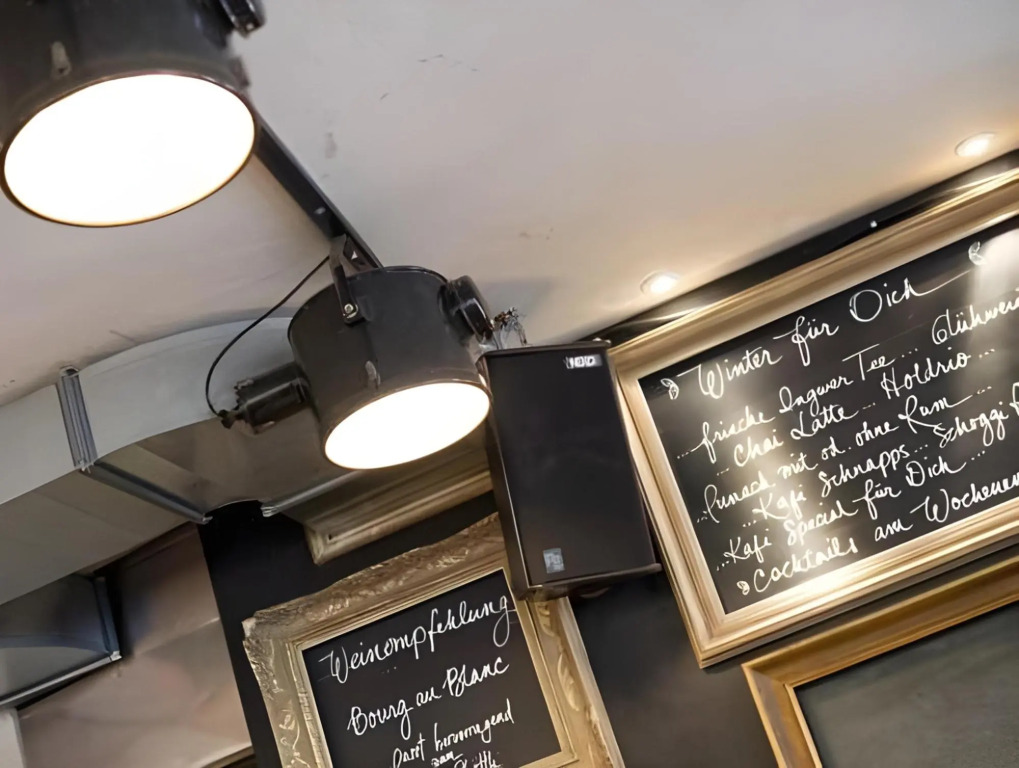 Winter für Dich
...frische Ingwer Tee... Glühwei
... Chai Latte... Holdrio...
...Punsch mit od. ohne Rum...
...Kafi Schnapps... Schoggi
...Kafi Spezial für Dich...
Cocktails am Wochenen
Weinempfehlung
Bourg au Blanc
passt hervorragend
zum